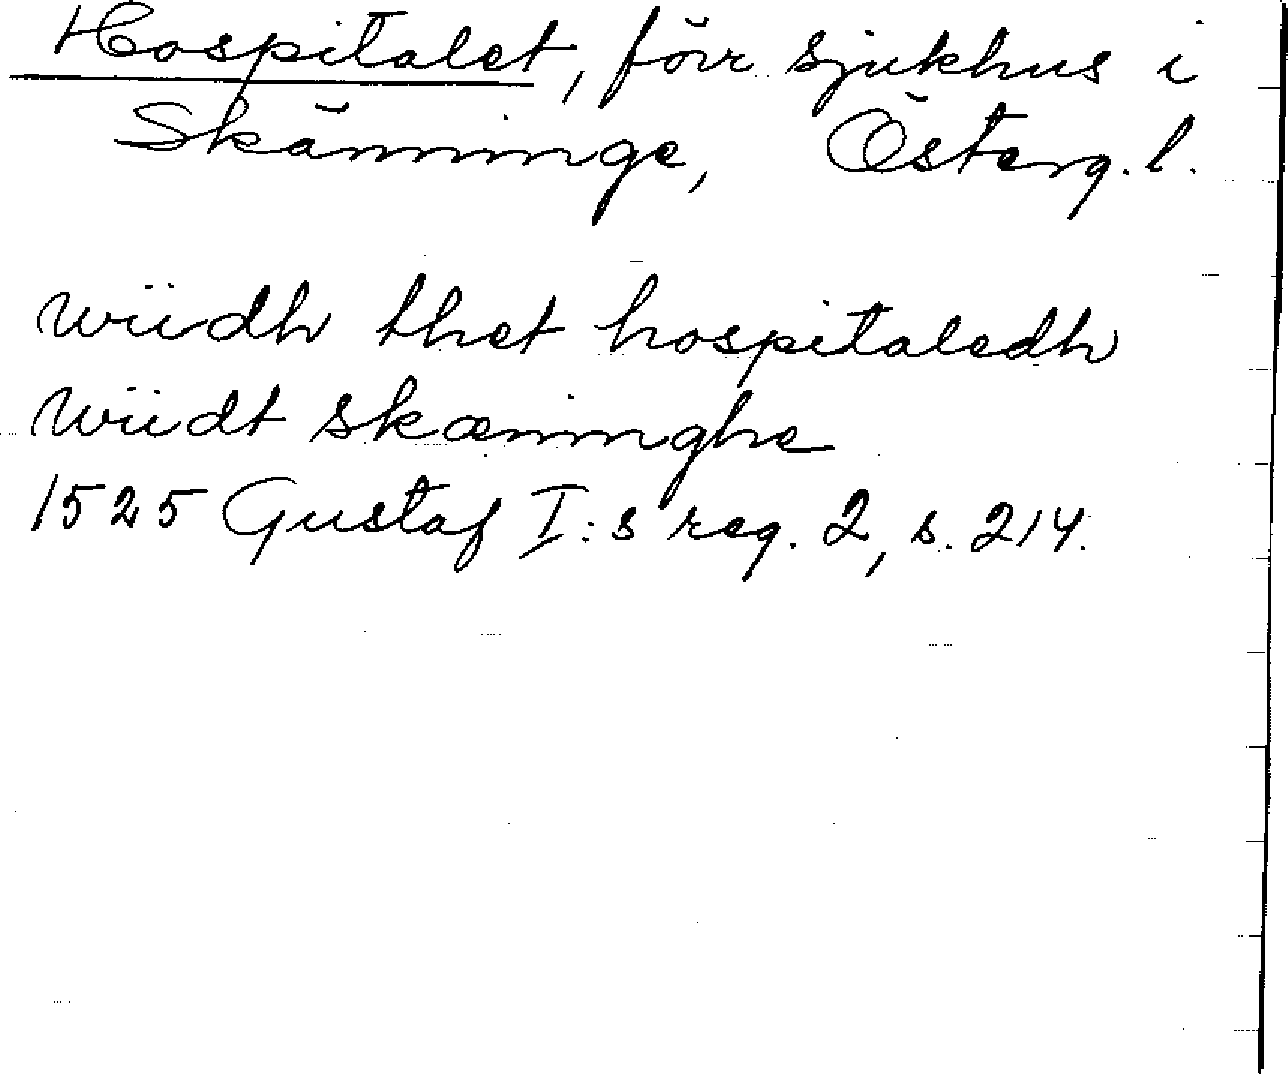 Hospitalet, förr sjukhus i
Skänninge, Österg. l.
wiidh thet hospitaledh
wiidt skæninghe
1525 Gustaf I:s reg. 2, s. 214.